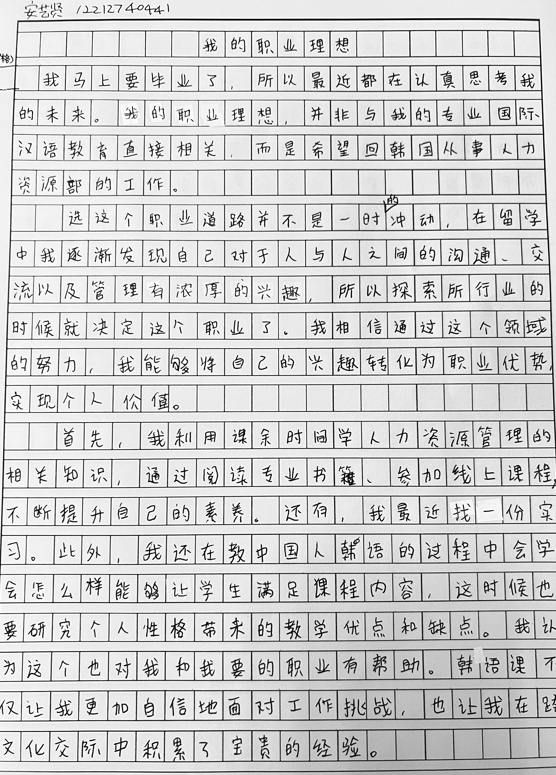 安艺贤 12212740441
我的职业理想
我马上要毕业了，所以最近都在认真思考我
的未来。我的职业理想，并非与我的专业国际
汉语教育直接相关，而是希望回韩国从事人力
资源部的工作。
选这个职业道路并不是一时的冲动，在留学
中我逐渐发现自己对于人与人之间的沟通、交
流以及管理有浓厚的兴趣，所以探索所行业的
时候就决定这个职业了。我相信通过这个领域
的努力，我能够将自己的兴趣转化为职业优势，
实现个人价值。
首先，我利用课余时间学人力资源管理的
相关知识，通过阅读专业书籍、参加线上课程，
不断提升自己的素养。还有，我最近找一份实
习。此外，我还在教中国人韩语的过程中会学
会怎么样能够让学生满足课程内容，这时候也
要研究个人性格带来的教学优点和缺点。我认
为这个也对我和我要的职业有帮助。韩语课不
仅让我更加自信地面对工作挑战，也让我在跨
文化交际中积累了宝贵的经验。